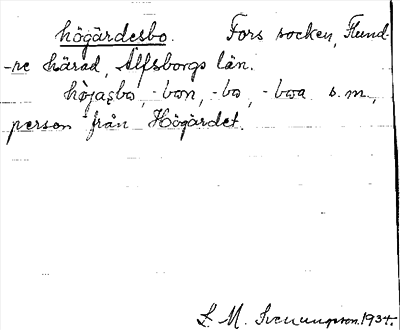 högärdesbo. Fors socken, Flund-
-re härad, Älfsborgs län.
hö̀jaşbo, -bɷn, -bɷ, -bɷa s.m.,
person från Högärdet.
L. M. Svenungsson. 1934.